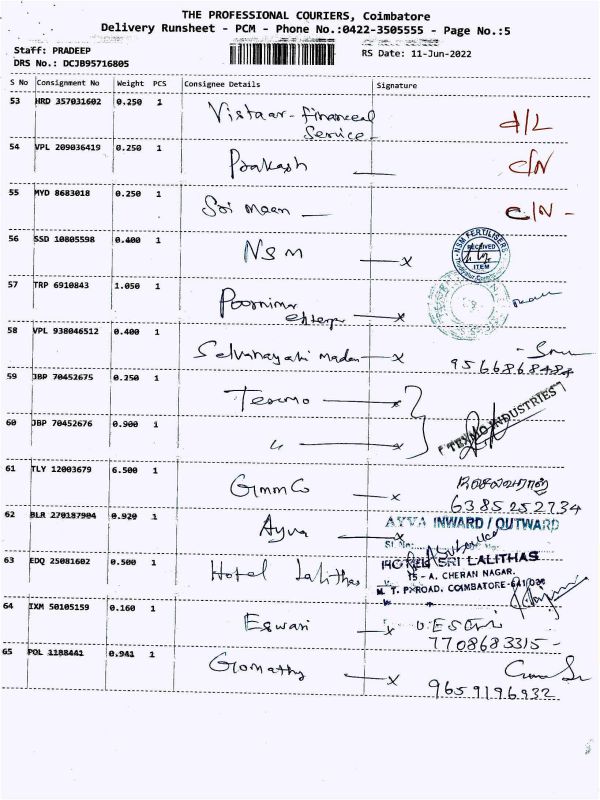 THE PROFESSIONAL COURIERS, Coimbatore
Delivery Runsheet - PCM - Phone No.:0422-3505555 - Page No.:5
Staff: PRADEEP
RS Date: 11-Jun-2022
DRS No.: DCJB95716805
S No Consignment No Weight PCS Consignee Details Signature
53 HRD 357031602 0.250 1 Vistaar - Financeal
Service - d/L
54 VPL 209036419 0.250 1 Prakash c/N
55 MYD 8683018 0.250 1 Sri c/N -
56 SSD 10805598 0.400 1 NSM x NSM FERTILISERS
RECEIVED
ITEM
57 TRP 6910843 1.050 1 Poornima
x
58 VPL 938046512 0.400 1 Selvanayaki x
9566868484
59 JBP 70452675 0.250 1 Texmo x
60 JBP 70452676 0.900 1 " x TEXMO INDUSTRIES
61 TLY 12003679 6.500 1 GmmCo x
6385252734
62 BLR 270187904 0.920 1 Ayva x AYVA INWARD / OUTWARD
63 EDQ 25081602 0.500 1 Hotel Lalithas SRI LALITHAS
15 - A, CHERAN NAGAR,
COIMBATORE-641
64 IXM 50105159 0.160 1 Eswari x
7708683315 -
65 POL 1188441 0.941 1 Gomathy x
9659196932